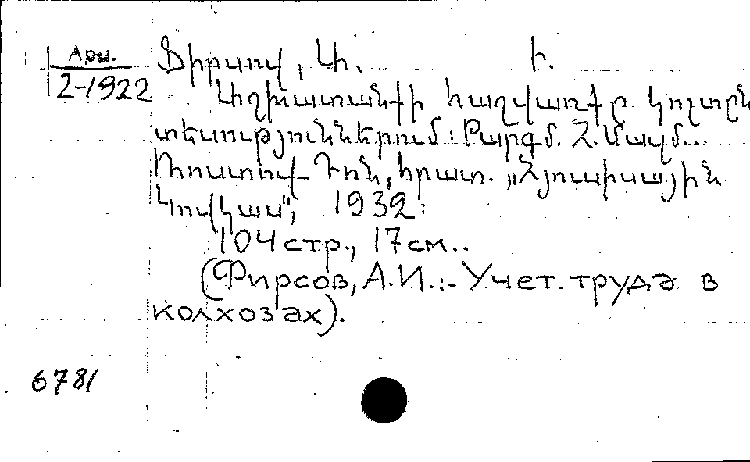 Арм.
2-1922
Ֆիրսով, Ա. Ի.
Աշխատանքի հաշվառքը կոլտըն
տեսություններում: Թարգմ. Հ. Մազմ...
Ռոստով-Դոն, հրատ. „Հյուսիսային
Կովկաս“, 1932:
104 стр., 17 см..
(Фирсов, А.И.:- Учет. труда в
колхозах).
6781